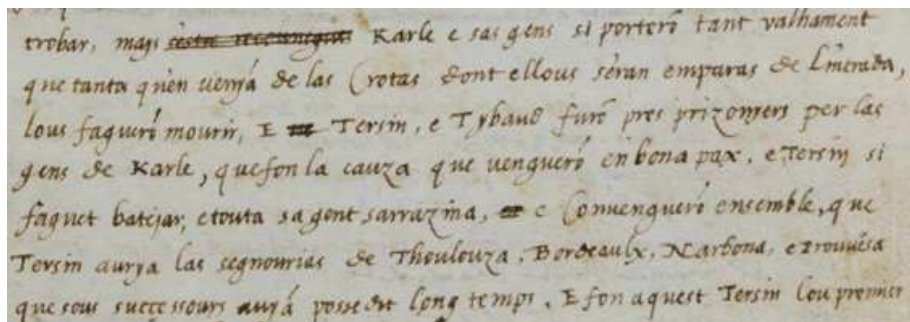 trobar, mays Karle e sas gens si porterõ tant valhament
que tanta qu'en venyá de las Crotas dont ellous sèran emparas de l'intrada,
lous faguerõ mourir, E Tersin, e Tybaud furõ pres prizonyers per las
gens de Karle, que fon la cauza que venguerõ en bona pax, e Tersin si
faguet batejar, e touta sa gent sarrazina, e Convenguerõ ensemble, que
Tersin aurya las segnourias de Thoulouza, Bordeaulx, Narbona, e Prouvēsa
que sous successours an possedit long temps. E fon aquest Tersin lou premier